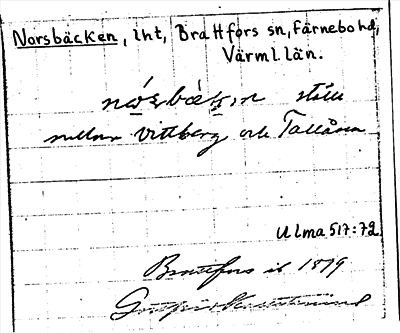 Norsbäcken, lht, Brattfors sn, Färnebo hd,
Värml. län.
ställe
mellan Vittberg och Tallåsen
Ulma 517:72
Brattfors ib 1879